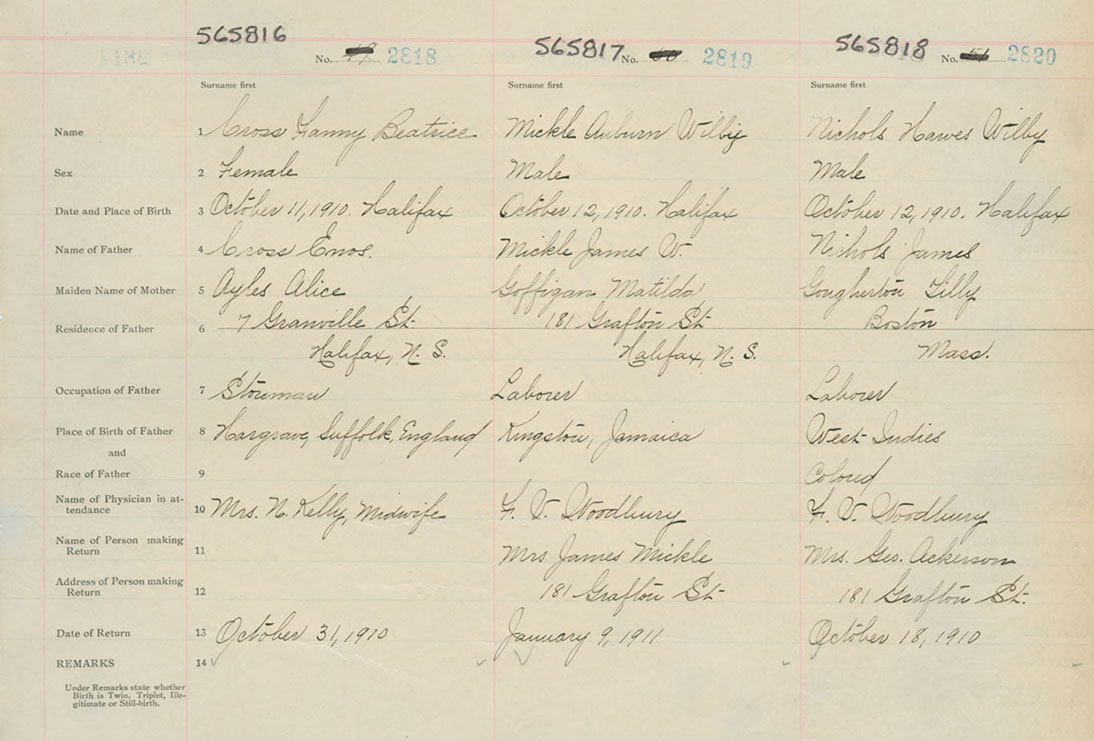 565816 No. 2818 565817 No. 2819 565818 No. 2820
Surname first Surname first Surname first
Name 1 Cross Fanny Beatrice Mickle Auburn Wilby Nichols Hawes Wilby
Sex 2 Female Male Male
Date and Place of Birth 3 October 11, 1910. Halifax October 12, 1910. Halifax October 12, 1910. Halifax
Name of Father 4 Cross Enos. Mickle James W. Nichols James
Maiden Name of Mother 5 Ayles Alice Goffigan Matilda Gougherton Lilly
Residence of Father 6 7 Granville St. 181 Grafton St Boston
Halifax, N. S. Halifax, N. S. Mass.
Occupation of Father 7 Storeman Laborer Laborer
Place of Birth of Father 8 Hargrave, Suffolk, England Kingston, Jamaica West Indies
and
Race of Father 9 Colored
Name of Physician in at-
tendance 10 Mrs. N. Kelly, Midwife F. V. Woodbury F. V. Woodbury
Name of Person making
Return 11 Mrs James Mickle Mrs. Geo. Ackerson
Address of Person making
Return 12 181 Grafton St. 181 Grafton St.
Date of Return 13 October 31, 1910 January 9, 1911 October 18, 1910
REMARKS 14
Under Remarks state whether
Birth is Twin, Triplet, Ille-
gitimate or Still-birth.